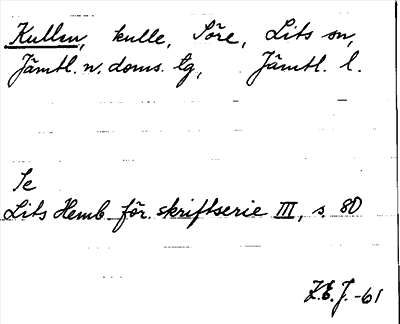 Kullen, kulle, Söre, Lits sn,
Jämtl. n. doms. tg, Jämtl. l.
Se
Lits Hemb. för. skriftserie III, s. 80
Z.E.J.-61